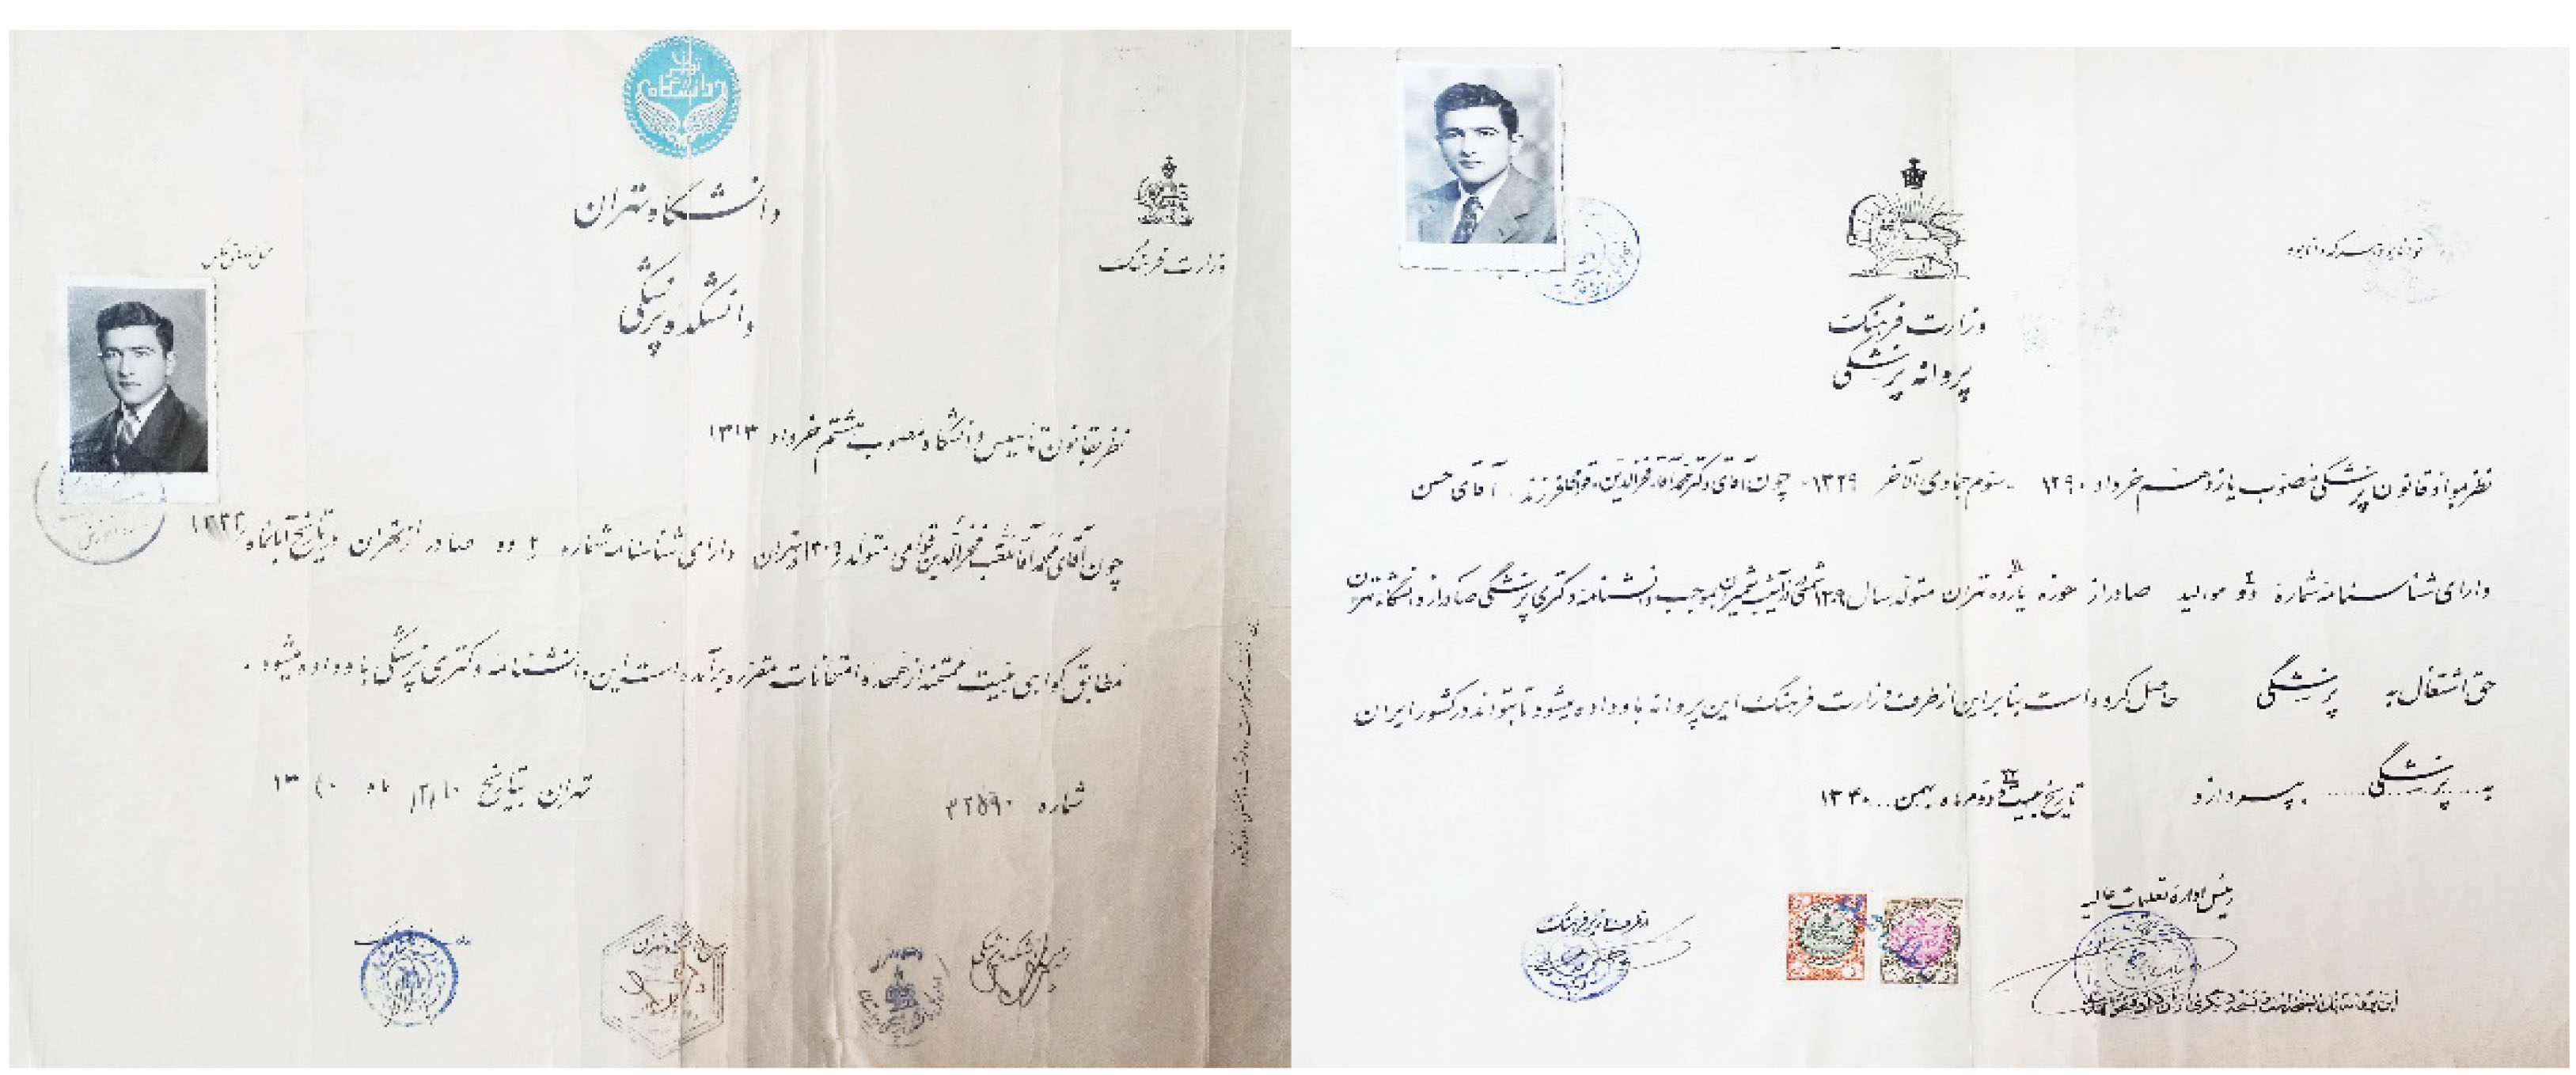 دانشگاه تهران
دانشگاه تهران
دانشکده پزشکی
وزارت فرهنگ
نظر بقانون تأسیس دانشگاه مصوب هشتم خرداد ۱۳۱۳
چون آقای محمد آقا ملقب فخرالدین قوامی متولد ۱۳۰۹ تهران دارای شناسنامه شماره ده صادر از تهران در تاریخ آبانماه
مطابق گواهی هیئت ممتحنه از عهده امتحانات مقرره برآمده است این دانشنامه دکتری پزشکی باو داده میشود.
شماره ۳۲۵۹۰
تهران بتاریخ ماه ۱۳۴۰
توانا بود هر که دانا بود
وزارت فرهنگ
پروانه پزشکی
نظر بمواد قانون پزشکی مصوب یازدهم خرداد ۱۲۹۰ - سوم جمادی الآخر ۱۳۲۹ - چون آقای دکتر محمد آقا فخرالدین قوامی فرزند آقای حسن
دارای شناسنامه شماره دو موالید صادر از حوزه یازده تهران متولد سال ۱۳۰۹ شمسی بموجب دانشنامه دکتری پزشکی صادر از دانشگاه تهران
حق اشتغال به پزشکی حاصل کرده است بنابراین از طرف وزارت فرهنگ این پروانه باو داده میشود تا بتواند در کشور ایران
به پزشکی بپردازد
تاریخ بیست و دوم ماه بهمن ۱۳۴۰
رئیس اداره تعلیمات عالیه
از طرف وزیر فرهنگ